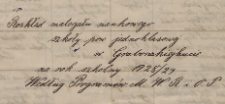 Rozkład materjału naukowego
szkoły pow. jednoklasowej
w Grabowskichgucie
na rok szkolny 1928/29
Według Programów M. W. R. i O. P.